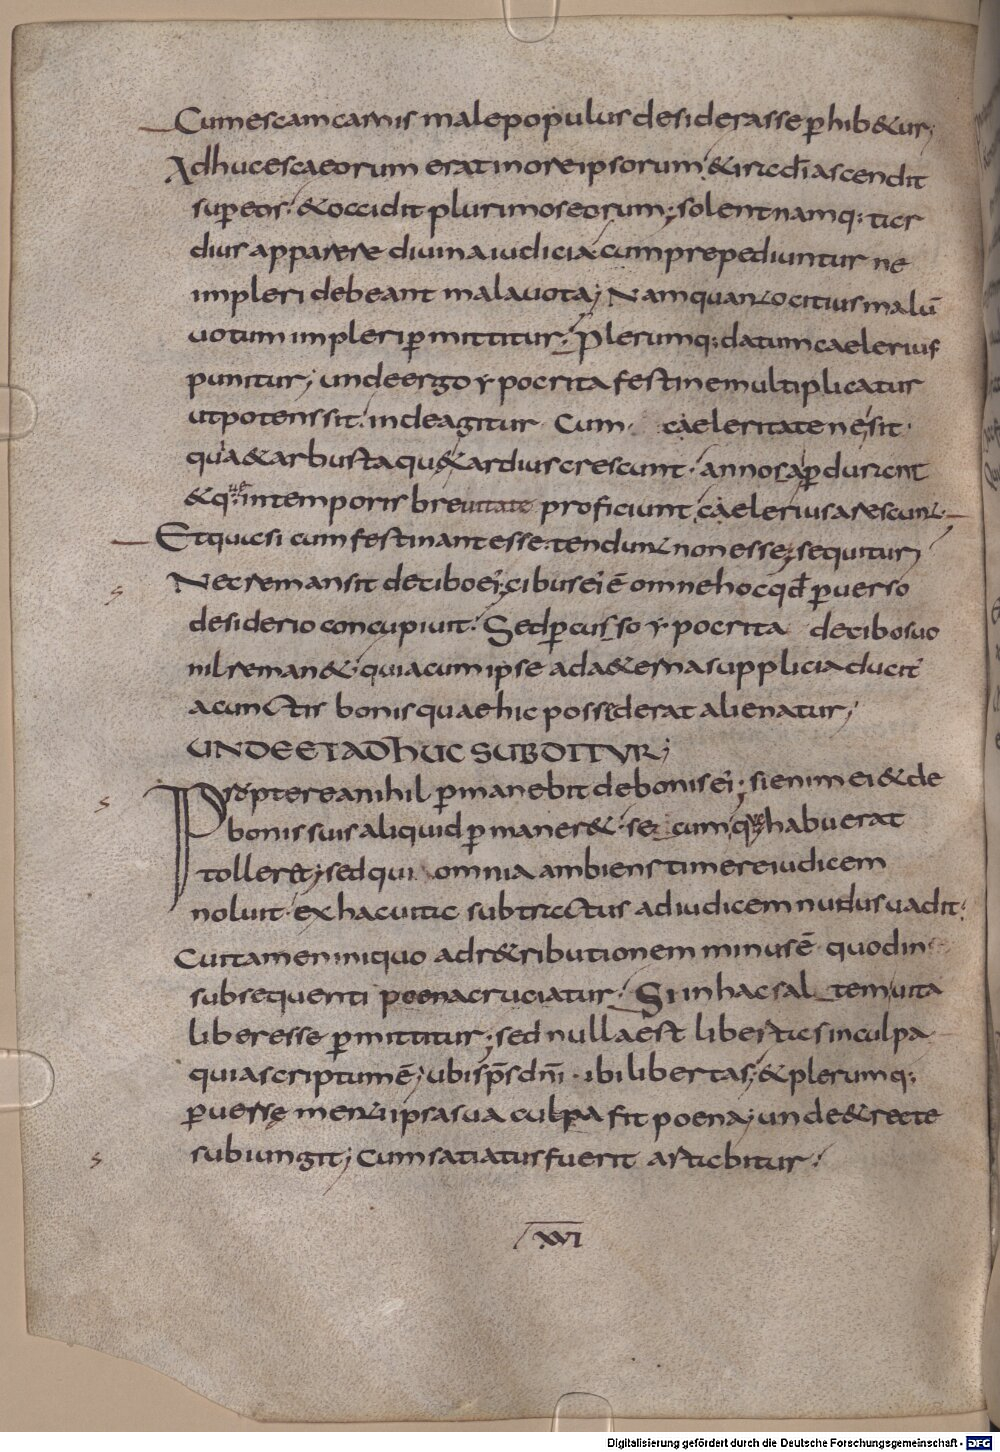 Cum escam carnis male populus desiderasse ꝑhib&ur;
Adhuc escae eorum erat in ore ipsorum & ira dī ascendit
suꝑ eos. & occidit plurimos eorum; solent namq: tar
dius apparere divina iudicia cum prepediuntur ne
impleri debeant mala vota; Nam quanto citius malū
votum impleri ꝑmittitur. Plerumq: datum caelerius
punitur; unde ergo ypocrita festine multiplicatur
ut potens sit. inde agitur Cum caeleritate ne sit.
quia & arbusta quę tardius crescunt. annosa ꝑdurent
& quę in temporis brevitate proficiunt caelerius arescunt.
Et quasi cum festinant esse. tendunt non esse; sequitur;
Nec remansit de cibo ei'; cibus ei' ē omne hoc qđ ꝑverso
desiderio concupivit. Sed ꝑcusso ypocrita de cibo suo
nil reman&. quia cum ipse ad a&erna supplicia ducit'
a cunctis bonis quae hic possederat alienatur;
UNDE ET ADHUC SUBDITVR;
Propterea nihil ꝑmanebit de bonis ei'; si enim ei & de
bonis suis aliquid ꝑmaner&. secum quę habuerat
toller&; sed qui omnia ambiens timere iudicem
noluit. ex hac vita subtractus ad iudicem nudus vadit.
Cui tamen iniquo ad r&ributionem minus ē quod in
subsequenti poena cruciatur. Si in hac saltem vita
liber esse ꝑmittitur; sed nulla est libertas in culpa
quia scriptum ē; ubi sp̄s dn̄i. ibi libertas; & plerumq:
ꝑversę menti ipsa sua culpa fit poena; unde & recte
subiungit; Cum satiatus fuerit artabitur.
XVI
Digitalisierung gefördert durch die Deutsche Forschungsgemeinschaft - DFG